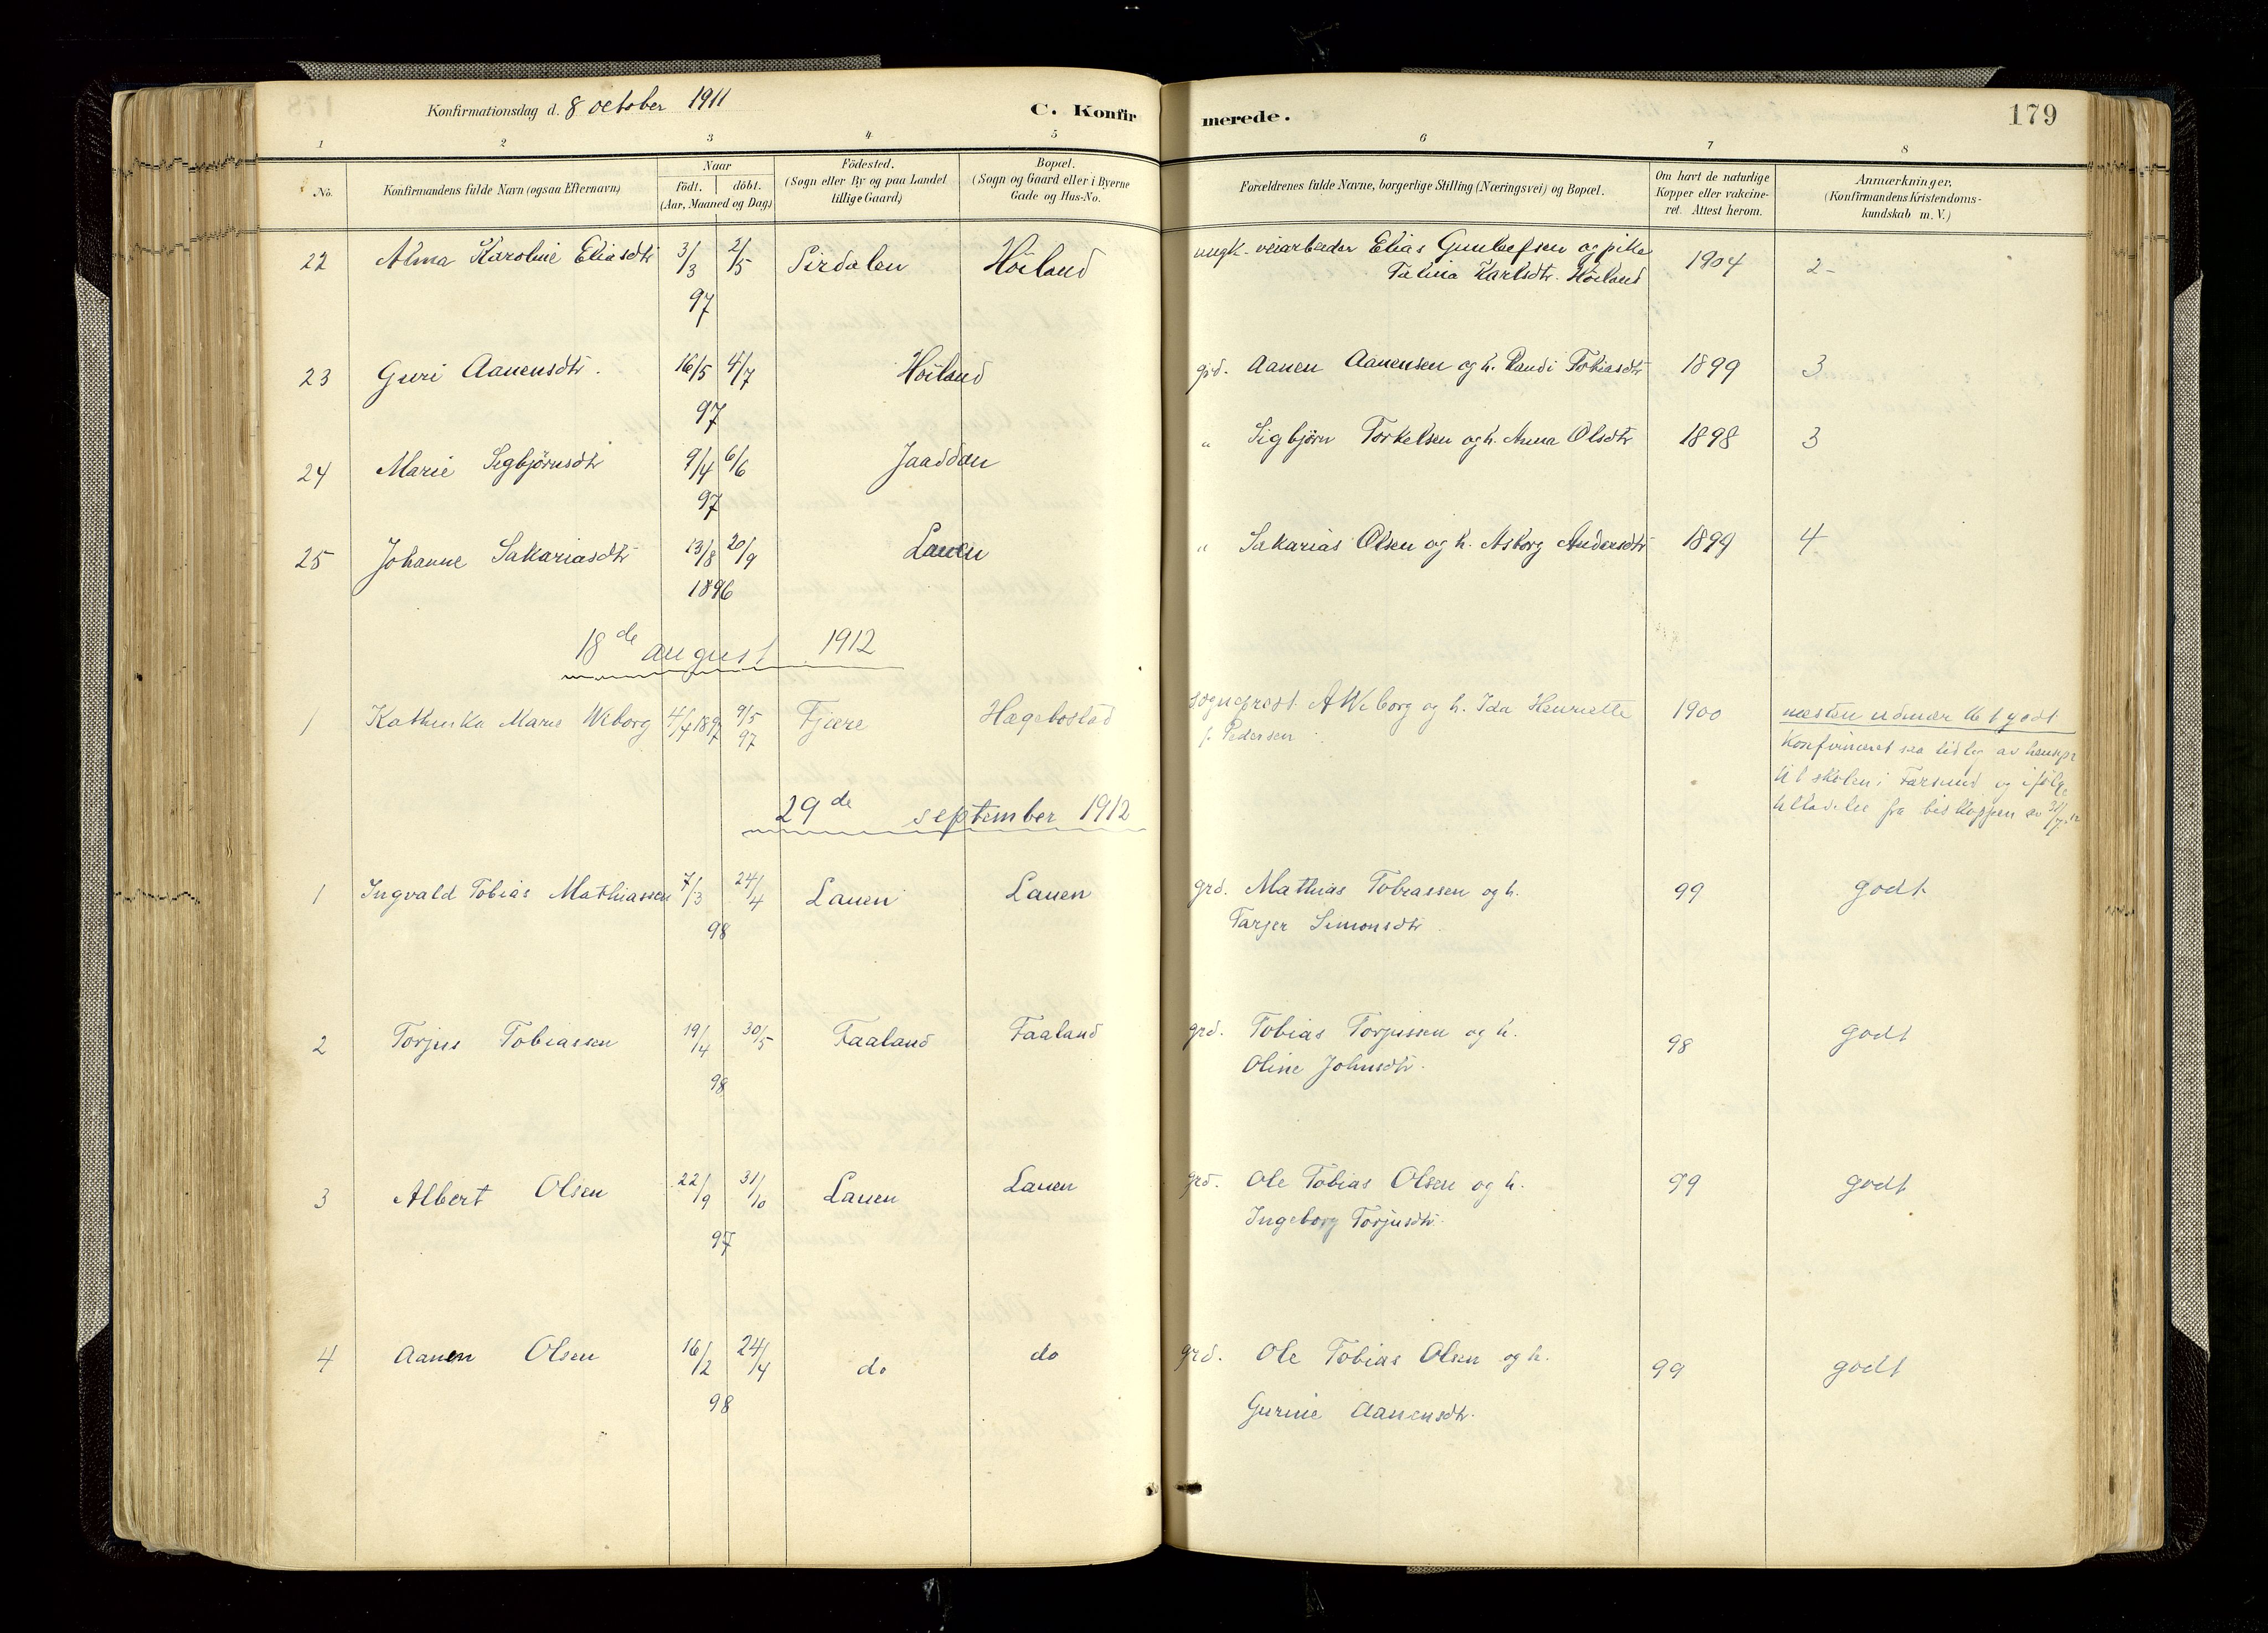 Konfirmationsdag d. 8 october 1911
C. Konfirmerede.
179
1 2 3 4 5 6 7 8
No.
Konfirmandens fulde Navn (ogsaa Efternavn)
Naar
födt. döbt.
(Aar, Maaned og Dag)
Födested.
(Sogn eller By og paa Landet
tillige Gaard)
Bopæl.
(Sogn og Gaard eller i Byerne
Gade og Hus-No.
Forældrenes fulde Navne, borgerlige Stilling (Næringsvei) og Bopæl.
Om havt de naturlige
Kopper eller vakcine-
ret. Attest herom.
Anmærkninger.
(Konfirmandens Kristendoms-
kundskab m. V.)
22 Alma Karoline Eliasdtr 3/3 2/5 Sirdalen Höiland ungk. veiarbeider Elias Gunleifsen og pike 1904 2-
97 Talina Karlsdtr. Höiland
23 Guri Aanensdtr. 16/5 4/7 Höiland grd. Aanen Aanensen og h. Randi Tobiasdtr 1899 3
97
24 Marie Sigbjörnsdtr 9/4 6/6 Jaaddan " Sigbjörn Torkelsen og h. Anna Olsdtr 1898 3
97
25 Johanne Sakariasdtr 13/8 20/9 Lauen " Sakarias Olsen og h. Asborg Andersdtr 1899 4
1896
18de august 1912
1 Kathinka Marie Wiborg 4/4 1897 9/5 97 Fjære Hægebostad sogneprest A Wiborg og h. Ida Henriette 1900 næsten udmærket godt
f. Pedersen
Konfirmeret saa tidlig av hensyn
til skolen i Farsund og ifölge
tilladelse fra biskoppen av 31/7 12
29de september 1912
1 Ingvald Tobias Mathiassen 7/3 24/4 Lauen Lauen grd. Mathias Tobiassen og h. 99 godt
98 Tarjer Simonsdtr
2 Torjus Tobiassen 19/4 30/5 Faaland Faaland grd. Tobias Torjussen og h. 98 godt
98 Oline Johnsdtr.
3 Albert Olsen 22/9 31/10 Lauen Lauen grd. Ole Tobias Olsen og h. 99 godt
97 Ingeborg Torjusdtr.
4 Aanen Olsen 16/2 24/4 do do grd. Ole Tobias Olsen og h. 99 godt
98 Gurine Aanensdtr.